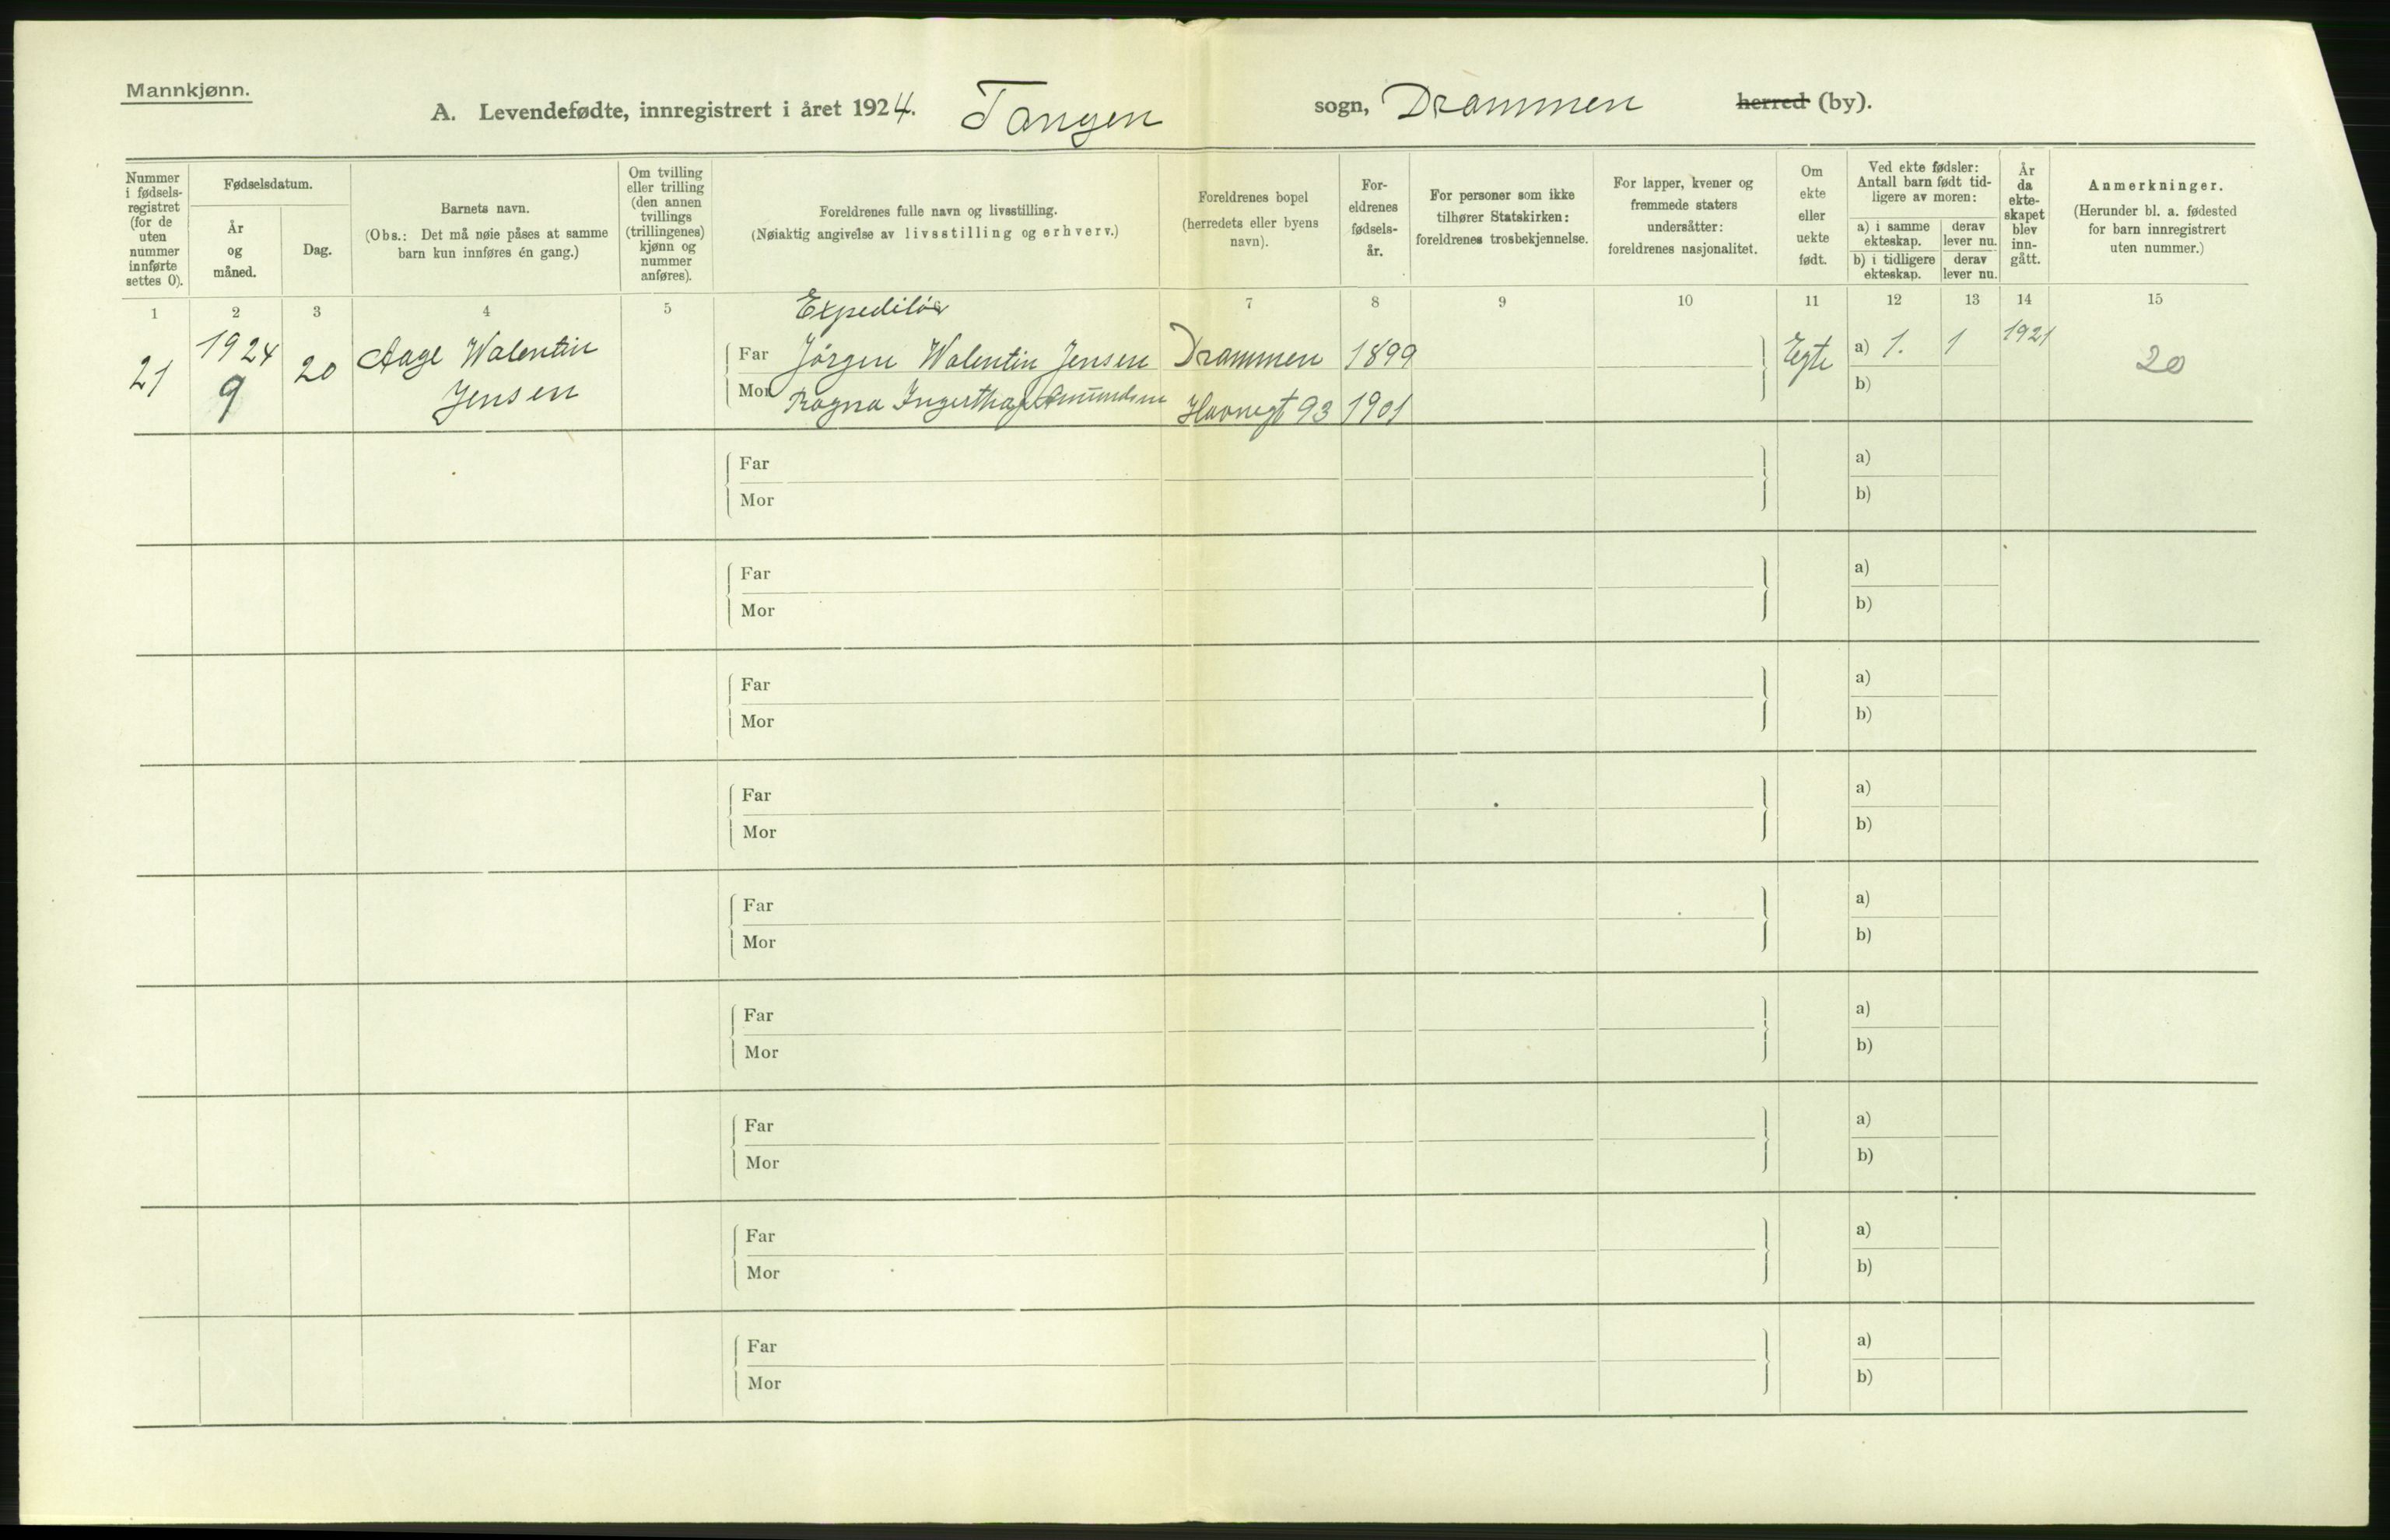 Mannkjønn.
A. Levendefødte, innregistrert i året 1924. Tangen sogn, Drammen herred (by).
Nummer
i fødsels-
registret
(for de
uten
nummer
innførte
settes 0).
Fødselsdatum.
År
og
måned.
Dag.
Barnets navn.
(Obs.: Det må nøie påses at samme
barn kun innføres én gang.)
Om tvilling
eller trilling
(den annen
tvillings
(trillingenes)
kjønn og
nummer
anføres).
Foreldrenes fulle navn og livsstilling.
(Nøiaktig angivelse av livsstilling og erhverv.)
Foreldrenes bopel
(herredets eller byens
navn).
For-
eldrenes
fødsels-
år.
For personer som ikke
tilhører Statskirken:
foreldrenes trosbekjennelse.
For lapper, kvener og
fremmede staters
undersåtter:
foreldrenes nasjonalitet.
Om
ekte
eller
uekte
født.
Ved ekte fødsler:
Antall barn født tid-
ligere av moren:
a) i samme
ekteskap.
derav
lever nu.
b) i tidligere
ekteskap.
derav
lever nu.
År
da
ekte-
skapet
blev
inn-
gått.
Anmerkninger.
(Herunder bl. a. fødested
for barn innregistrert
uten nummer.)
1 2 3 4 5 6 7 8 9 10 11 12 13 14 15
Expeditør
21 1924 20 Aage Walentin Far Jörgen Walentin Jensen Drammen 1899 Egte a) 1. 1 1921 20
9 Jensen Mor Ragna Amundsen Havnegt 93 1901 b)
Far a)
Mor b)
Far a)
Mor b)
Far a)
Mor b)
Far a)
Mor b)
Far a)
Mor b)
Far a)
Mor b)
Far a)
Mor b)
Far a)
Mor b)
Far a)
Mor b)